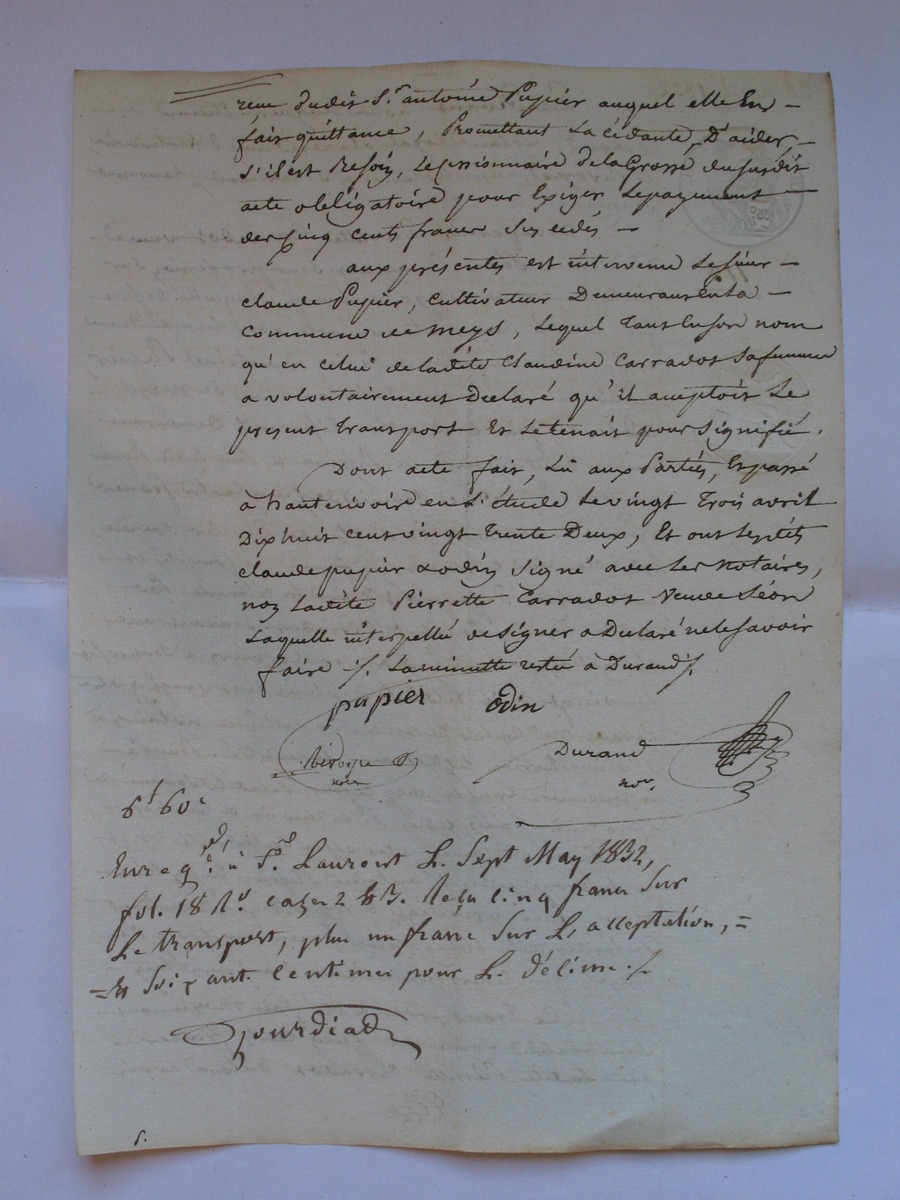 reçu dudit Sr. antoine Pupier auquel elle En –
fait quittance, Promettant La cédante, D'aider, –
s'il est Besoin, Le cessionnaire de la Grosse du susdit
acte obligatoire pour Exiger Le payement –
des cinq cents francs Sus cédés –
aux présentes est intervenu Le sieur –
claude Pupier, cultivateur Demeurant En la –
commune de meys, Lequel Tant En son nom
qu'en celui de ladite Claudine Carradot Sa femme
a volontairement Déclaré qu'il acceptoit Le
present Transport Et Le tenait pour Signifié.
Dont acte fait, Lû aux Parties, Et passé
à hauterivoire en L'étude Le vingt Trois avril
Dix huit cent vingt Trente Deux, Et ont Lesdits
claude pupier & odin Signé avec Les Notaires,
non Ladite Pierrette Carradot Veuve Léon
Laquelle interpellée de Signer a Déclaré ne le Savoir
faire ./. La minutte restée à Durand ./.
pupier odin
Durand
nore
nore.
6f 60c
Enregé. à St. Laurent Le Sept May 1832,
fol. 18 Ro. cases 2 & 3. Reçu cinq francs Sur
Le transport, plus un franc Sur L'acceptation, =
= Et Soixant. Centimes pour Le Décime ./.
Gourdiat